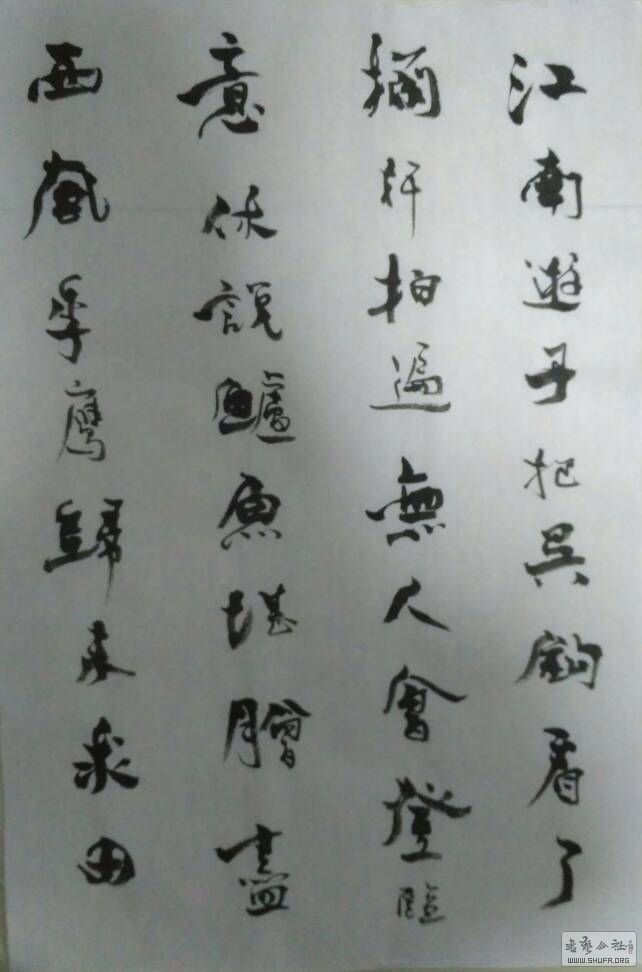 江南遊子把吳鉤看了
欄杆拍遍無人會登臨
意休說鱸魚堪膾盡
西風季鷹歸未求田
書藝公社
WWW.SHUFA.ORG